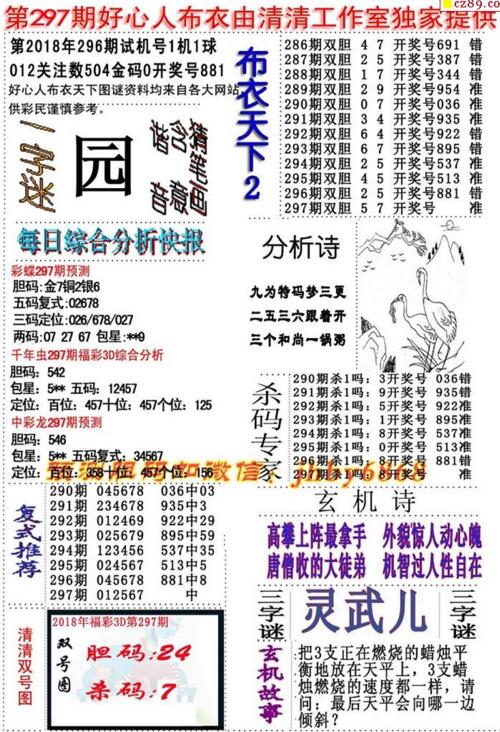 cz89.co
第297期好心人布衣由清清工作室独家提供
第2018年296期试机号1机1球
012关注数504金码0开奖号881
好心人布衣天下图谜资料均来自各大网站
供彩民谨慎参考。
一字迷
园
猪含音
猪笔画意
布衣天下2
286期双胆 4 7 开奖号691 错
287期双胆 2 5 开奖号387 错
288期双胆 1 7 开奖号344 错
289期双胆 2 9 开奖号954 准
290期双胆 0 7 开奖号036 准
291期双胆 3 4 开奖号935 准
292期双胆 6 4 开奖号922 错
293期双胆 6 7 开奖号895 错
294期双胆 2 5 开奖号537 准
295期双胆 4 5 开奖号513 准
296期双胆 2 5 开奖号881 错
297期双胆 5 7 开奖号 准
每日综合分析快报
彩蝶297期预测
胆码:金7铜2银6
五码复式:02678
三码定位:026/678/027
两码:07 27 67 包星:**9
千年虫297期福彩3D综合分析
胆码:542
包星:5** 五码:12457
定位:百位:457十位:457个位:125
中彩龙297期预测
胆码:546
包星:5** 五码复式:34567
定位:百位:358十位:457个位:156
分析诗
九为特码梦三更
二五三六跟着开
三个和尚一锅粥
杀码专家
290期杀1吗:3开奖号 036错
291期杀1吗:9开奖号 935错
292期杀1吗:5开奖号 922准
293期杀1吗:1开奖号 895准
294期杀1吗:8开奖号 537准
295期杀1吗:0开奖号 513准
296期杀1吗:8开奖号 881错
297期杀1吗:89开奖号 准
复式推荐
290期 045678 036中03
291期 234678 935中3
292期 012469 922中29
293期 025689 895中59
294期 123456 537中35
295期 024567 513中5
296期 045678 881中8
297期 012567 中
玄机诗
高攀上阵最拿手 外貌惊人动心魄
唐僧收的大徒弟 机智过人性自在
三字谜
灵武儿
三字谜
清清双号图
2018年福彩3D第297期
双号图
胆码:24
杀码:7
玄机故事
把3支正在燃烧的蜡烛平
衡地放在天平上,3支蜡
烛燃烧的速度都一样,请
问:最后天平会向哪一边
倾斜?